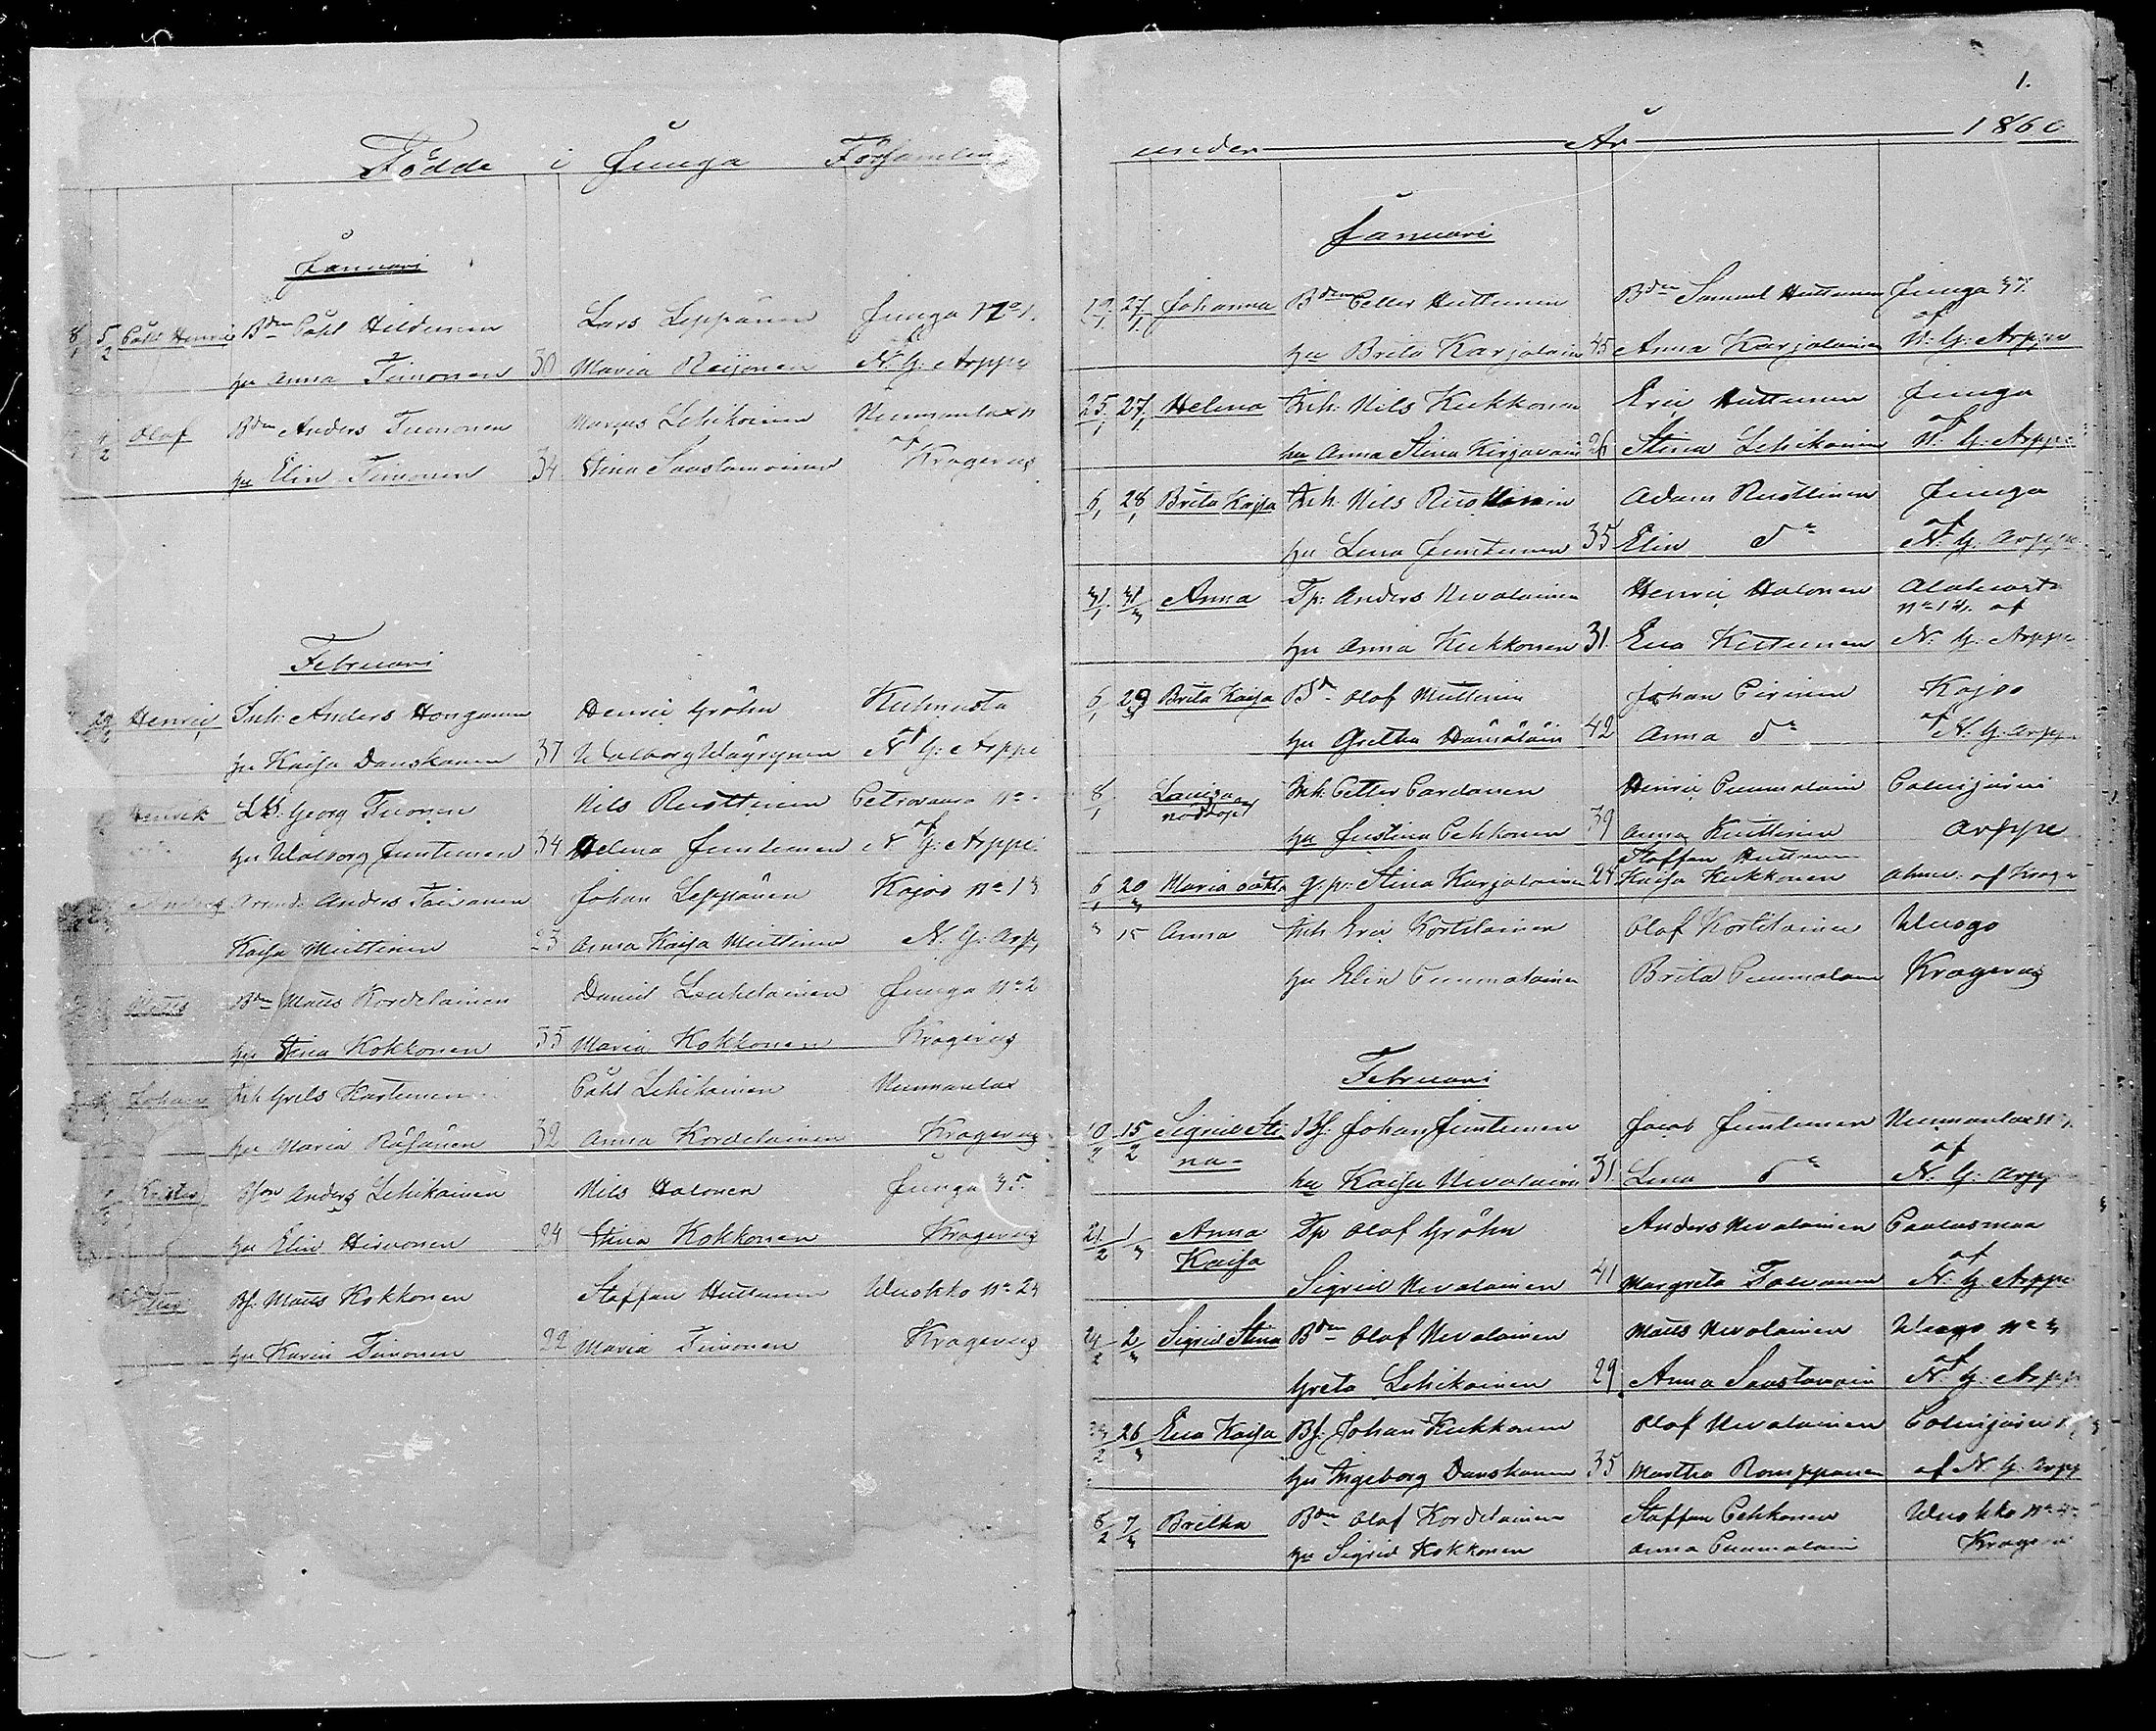 Födde i Juuga Församling
Januari
8/1 5/2 Påhl Henric Bden Påhl Hildunen Lars Leppänen Juuga No 1.
hu Anna Timonen 30 Maria Reijonen af N. G: Arppe
4/2 Olof Bden Anders Tuononen Marcus Lehikoinen Nunnanlax
hu Elin Timonen 34 Stina Saastamoinen af Kragerus
Februari
Henric Inh: Anders Honganen Henric Gröhn Kuhnusta
hu Kaisa Danskanen 37 Walborg Wäyrynen af N. G: Arppe
Henrik LB. Georg Tuonen Nils Ruottinen Petrovaara No
hu Walborg Juntunen 34 Helena Juntunen af N. G: Arppe
Anders Arend: Anders Toivanen Johan Leppänen Kajoo No 13
Kaisa Muttinen 23 Anna Kaisa Muttinen N. G: Arp
Matts Bden Matts Kordelainen Daniel Laukelainen Juuga No 2
hu Stina Kokkonen 35 Maria Kokkonen Kragerus
Johan Inh Grels Karlunen Påhl Lehikoinen Nunnanlax
hu Maria Räsänen 32 Anna Kordelainen Kragerus
Krister Bson Anders Lehikainen Nils Halonen Juuga 35.
hu Elin Hirvonen 24 Stina Kokkonen Kragerus
Bf. Matts Kokkonen Staffan Huttunen Wuokko No 24
hu Karin Timonen 22 Maria Timonen Kragerus
1.
under År 1860
Januari
19/1 27/1 Johanna Bden Petter Huttunen Bden Samuel Huttunen Juuga 37.
hu Brita Karjalain 45 Anna Karjalainen af N. G: Arppe
25/1 27/1 Helena Inh: Nils Kukkonen Eric Huttunen Juuga
hu Anna Stina Kirjavain 26 Stina Lehikoinen af N. G: Arppe
6/1 28/1 Brita Kajsa Inh. Nils Ruottinain Adam Ruottinen Juuga
hu Lena Juntunen 35 Elin do af N. G. Arppe
31/1 31/3 Anna Tp: Anders Nevalainen Henric Halonen Alaluosta
No 14. af
hu Anna Kukkonen 31. Eva Kettunen N. G. Arppe
6/1 29/3 Brita Kaisa Bd Olof Muttinen Johan Pirinen Kajoo
hu Gretha Hämäläin 42 Anna do af N. G. Arpp
8/1 Laurga nöddöpt Inh. Petter Pardanen Henric Pummalain Polvijärvi
hu Justina Pehkonen 39 Anna Kuittinen Arppe
Staffan Huttunen
6/1 20/3 Maria oäkta q. p: Stina Karjalainen 24 Kaisa Kukkonen Ahmo: af Krage
3 15 Anna Inh. Eric Kortelainen Olof Kortelainen Wuogo
hu Elin Pummalainen Brita Pummalain Kragerus
Februari
10/2 15/2 Sigrid Sti- Bf. Johan Juntunen Jacob Juntunen Nunnanlax No
na- hu Kaisa Nevalainen 31. Lena do af N. G: Arpp
21/2 1/3 Anna Tp Olof Gröhn Anders Nevalainen Paalasmaa
Kaisa Sigrid Nevalainen 41 Margreta Toivanen af N. G Arppe
24/2 2/3 Sigrid Stina Bden Olof Nevalainen Matts Nevalainen Wuogo No 3
Greta Lehikainen 29 Anna Saastamoin af N. G: Arpp
24/2 26/3 Eva Kaisa Bf: Johan Kukkonen Olof Nevalainen Polvijärvi
hu Ingeborg Danskanen 35 Martha Romppanen af N. G. Arpp
6/2 7/3 Britha Bden Olof Kordelainen Staffan Pehkonen Wuokko No
hu Sigrid Kokkonen Anna Pummalain Krageru